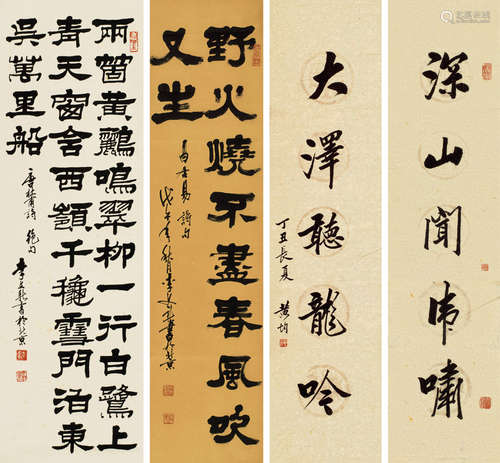 深山聞虎嘯
大澤聽龍吟
丁丑長夏 黃均
野火燒不盡春風吹
又生
白居易詩句
兩箇黃鸝鳴翠柳一行白鷺上
青天窗含西嶺千穐雪門泊東
吳萬里船
唐杜甫詩絕句